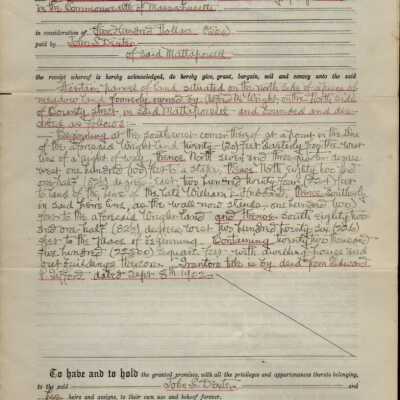 in the Commonwealth of Massachusetts
in consideration of Five Hundred Dollars (500)
paid by John S. Dexter
of said Mattapoisett
the receipt whereof is hereby acknowledged, do hereby give, grant, bargain, sell and convey unto the said
Certain parcel of land situated on the north side of a piece of
meadow land formerly owned by Wright, on the North side
of County street, in said Mattapoisett and bounded and des-
cribed as follows:
Beginning at the southwest corner thereof at a point in the line
of the aforesaid Wright land twenty (20) feet easterly from the west
line of a right of way, thence North seven and three-quarter degrees
west one hundred feet to a stake, thence North Eighty two and
one-half (82½) degrees East two hundred twenty four (224) feet
to land of the heirs of the late William Hubbard; thence Southerly
in said heirs line, as the wall now stands one hundred two
feet to the aforesaid Wright land and thence South eighty two
and one-half (82½) degrees West two hundred forty six (246)
feet to the place of beginning. Containing twenty two thousand
five hundred (22500) square feet with dwelling house and
out buildings thereon. Grantors title is by deed from Edward
dated Sept. 8th 1902
To have and to hold the granted premises, with all the privileges and appurtenances thereto belonging,
to the said John S. Dexter and
his heirs and assigns, to their own use and behoof forever.